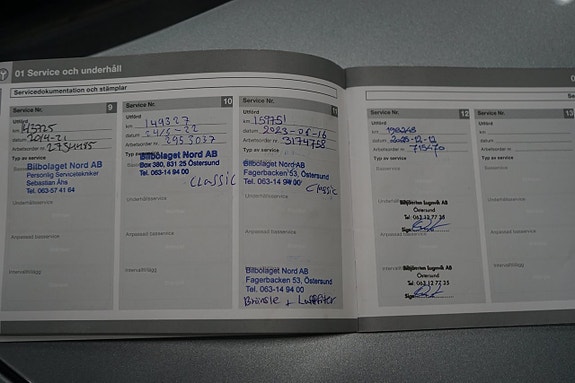 01 Service och underhåll
Servicedokumentation och stämplar
Service Nr. 9
Utförd
km
datum
Arbetsorder nr.
Typ av service
Bilbolaget Nord AB
Personlig Servicetekniker
Sebastian Åhs
Tel. 063-57 41 64
Anpassad basservice
Intervalltillägg
Service Nr. 10
Utförd
km 149327
datum 24/5-22
Arbetsorder nr. 2955037
Typ av service
Bilbolaget Nord AB
Box 380, 831 25 Östersund
Tel. 063-14 94 00
CLASSIC
Basservice
Anpassad basservice
Intervalltillägg
Service Nr. 11
Utförd
km
datum 2023-06-16
Arbetsorder nr. 3174758
Typ av service
Bilbolaget Nord AB
Fagerbacken 53, Östersund
Tel. 063-14 94 00
Classic
Basservice
Anpassad basservice
Bilbolaget Nord AB
Fagerbacken 53, Östersund
Tel. 063-14 94 00
Bränsle + Luftfilter
Service Nr. 12
Utförd
km
datum
Arbetsorder nr. 715470
Typ av service
Basservice
Biltjänsten Lugnvik AB
Östersund
Tel: 063 12 77 35
Sign
Biltjänsten Lugnvik AB
Östersund
Tel: 063 12 77 35
Sign
Service Nr. 13
Utförd
km
datum
Arbetsorder nr.
Typ av service
Basservice
Anpassad basservice
Intervalltillägg